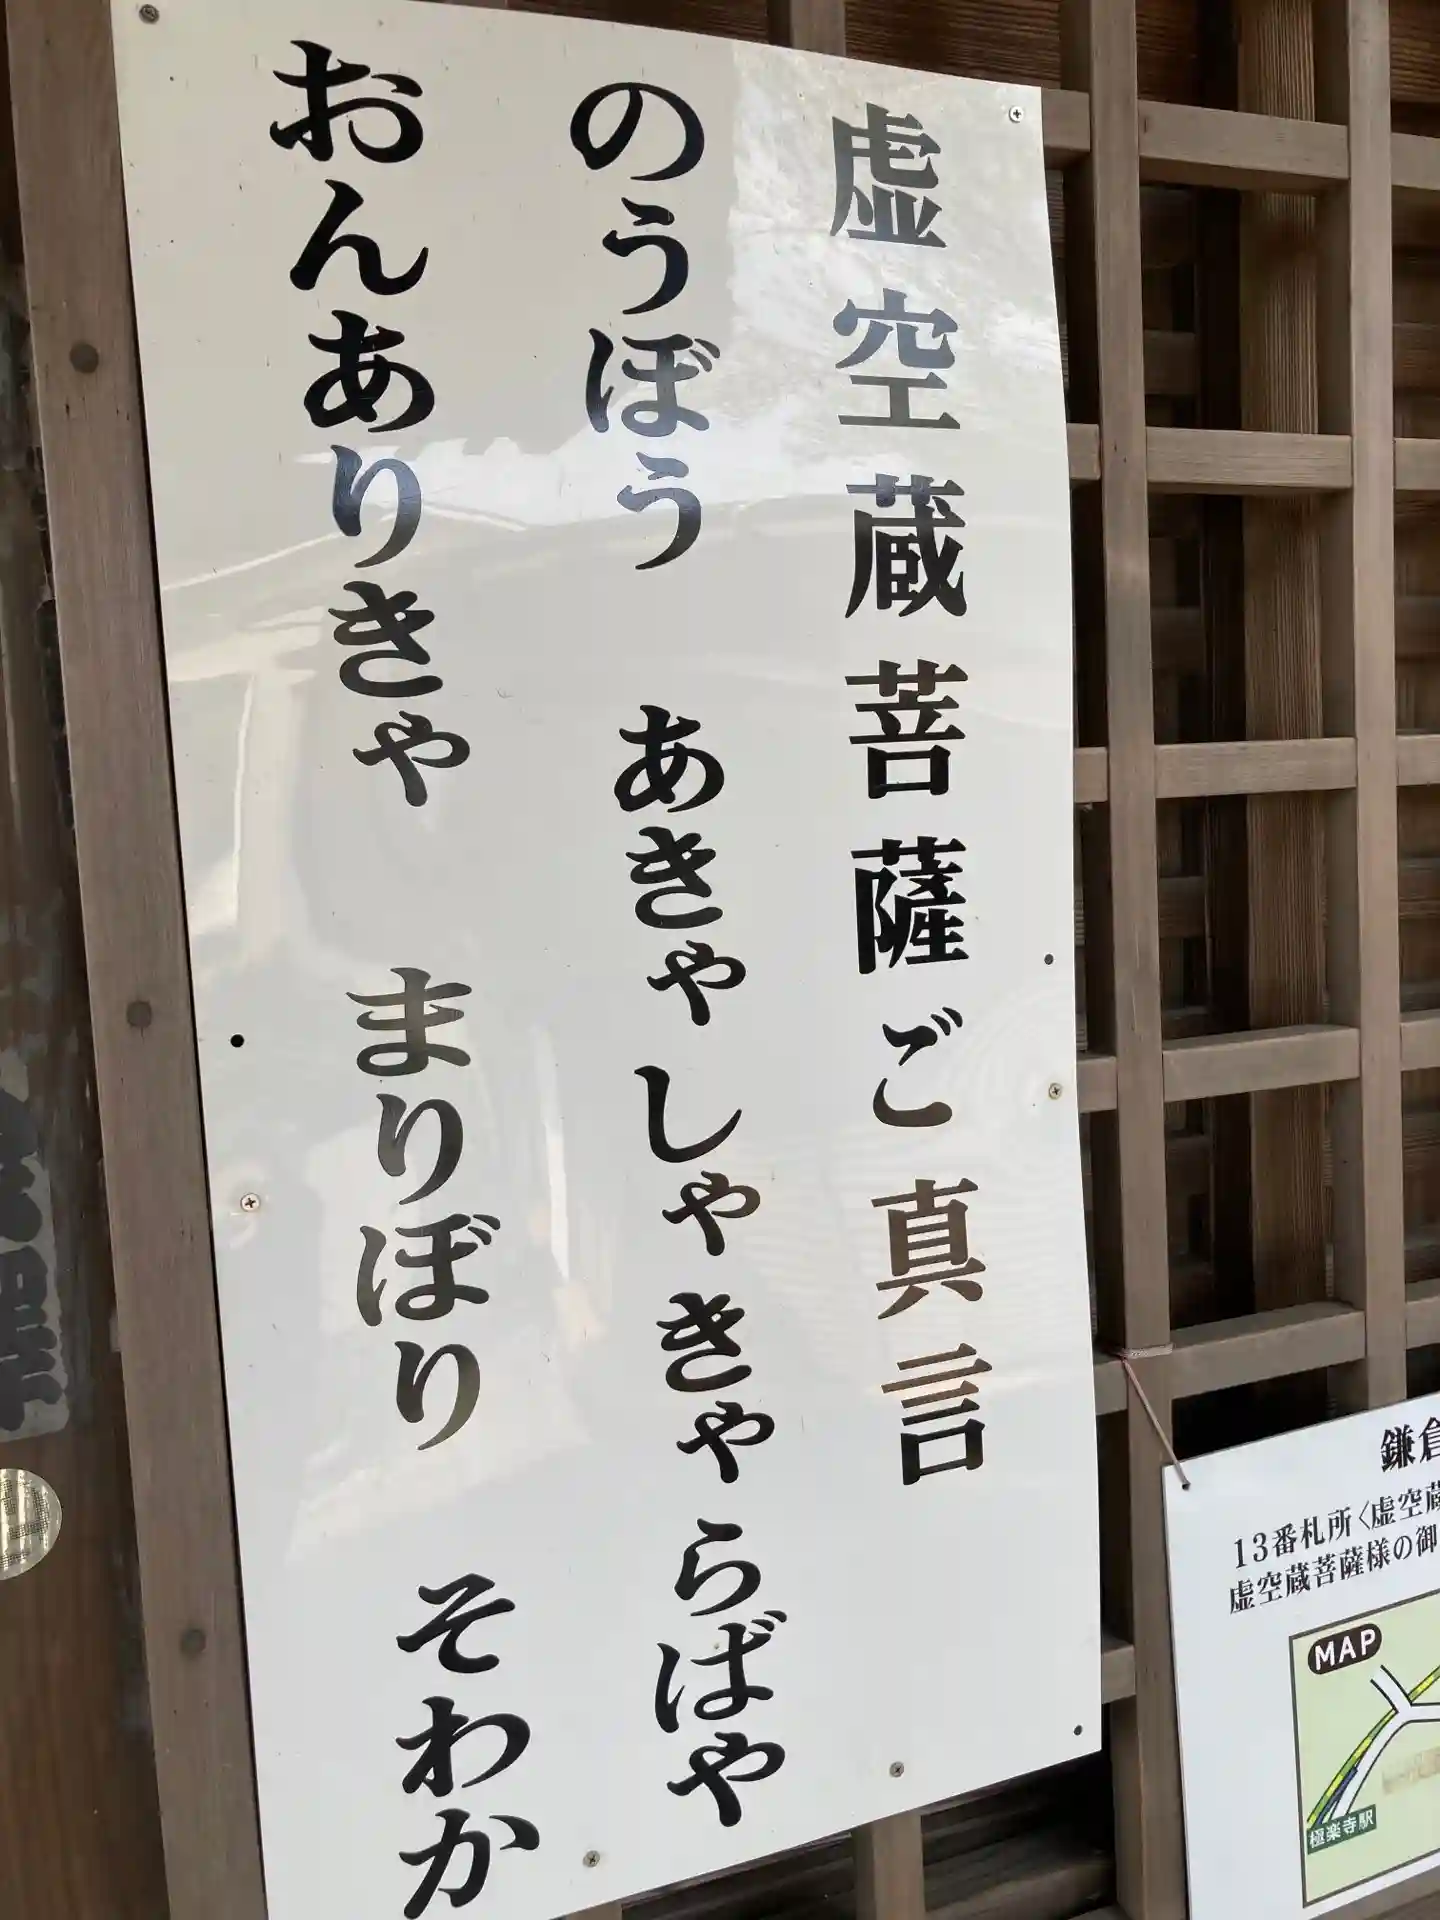 虚空蔵菩薩ご真言
のうぼう　あきゃしゃきゃらばや
おんありきゃ　まりぼり　そわか
鎌倉
13番札所〈虚空蔵
虚空蔵菩薩様の御
MAP
極楽寺駅